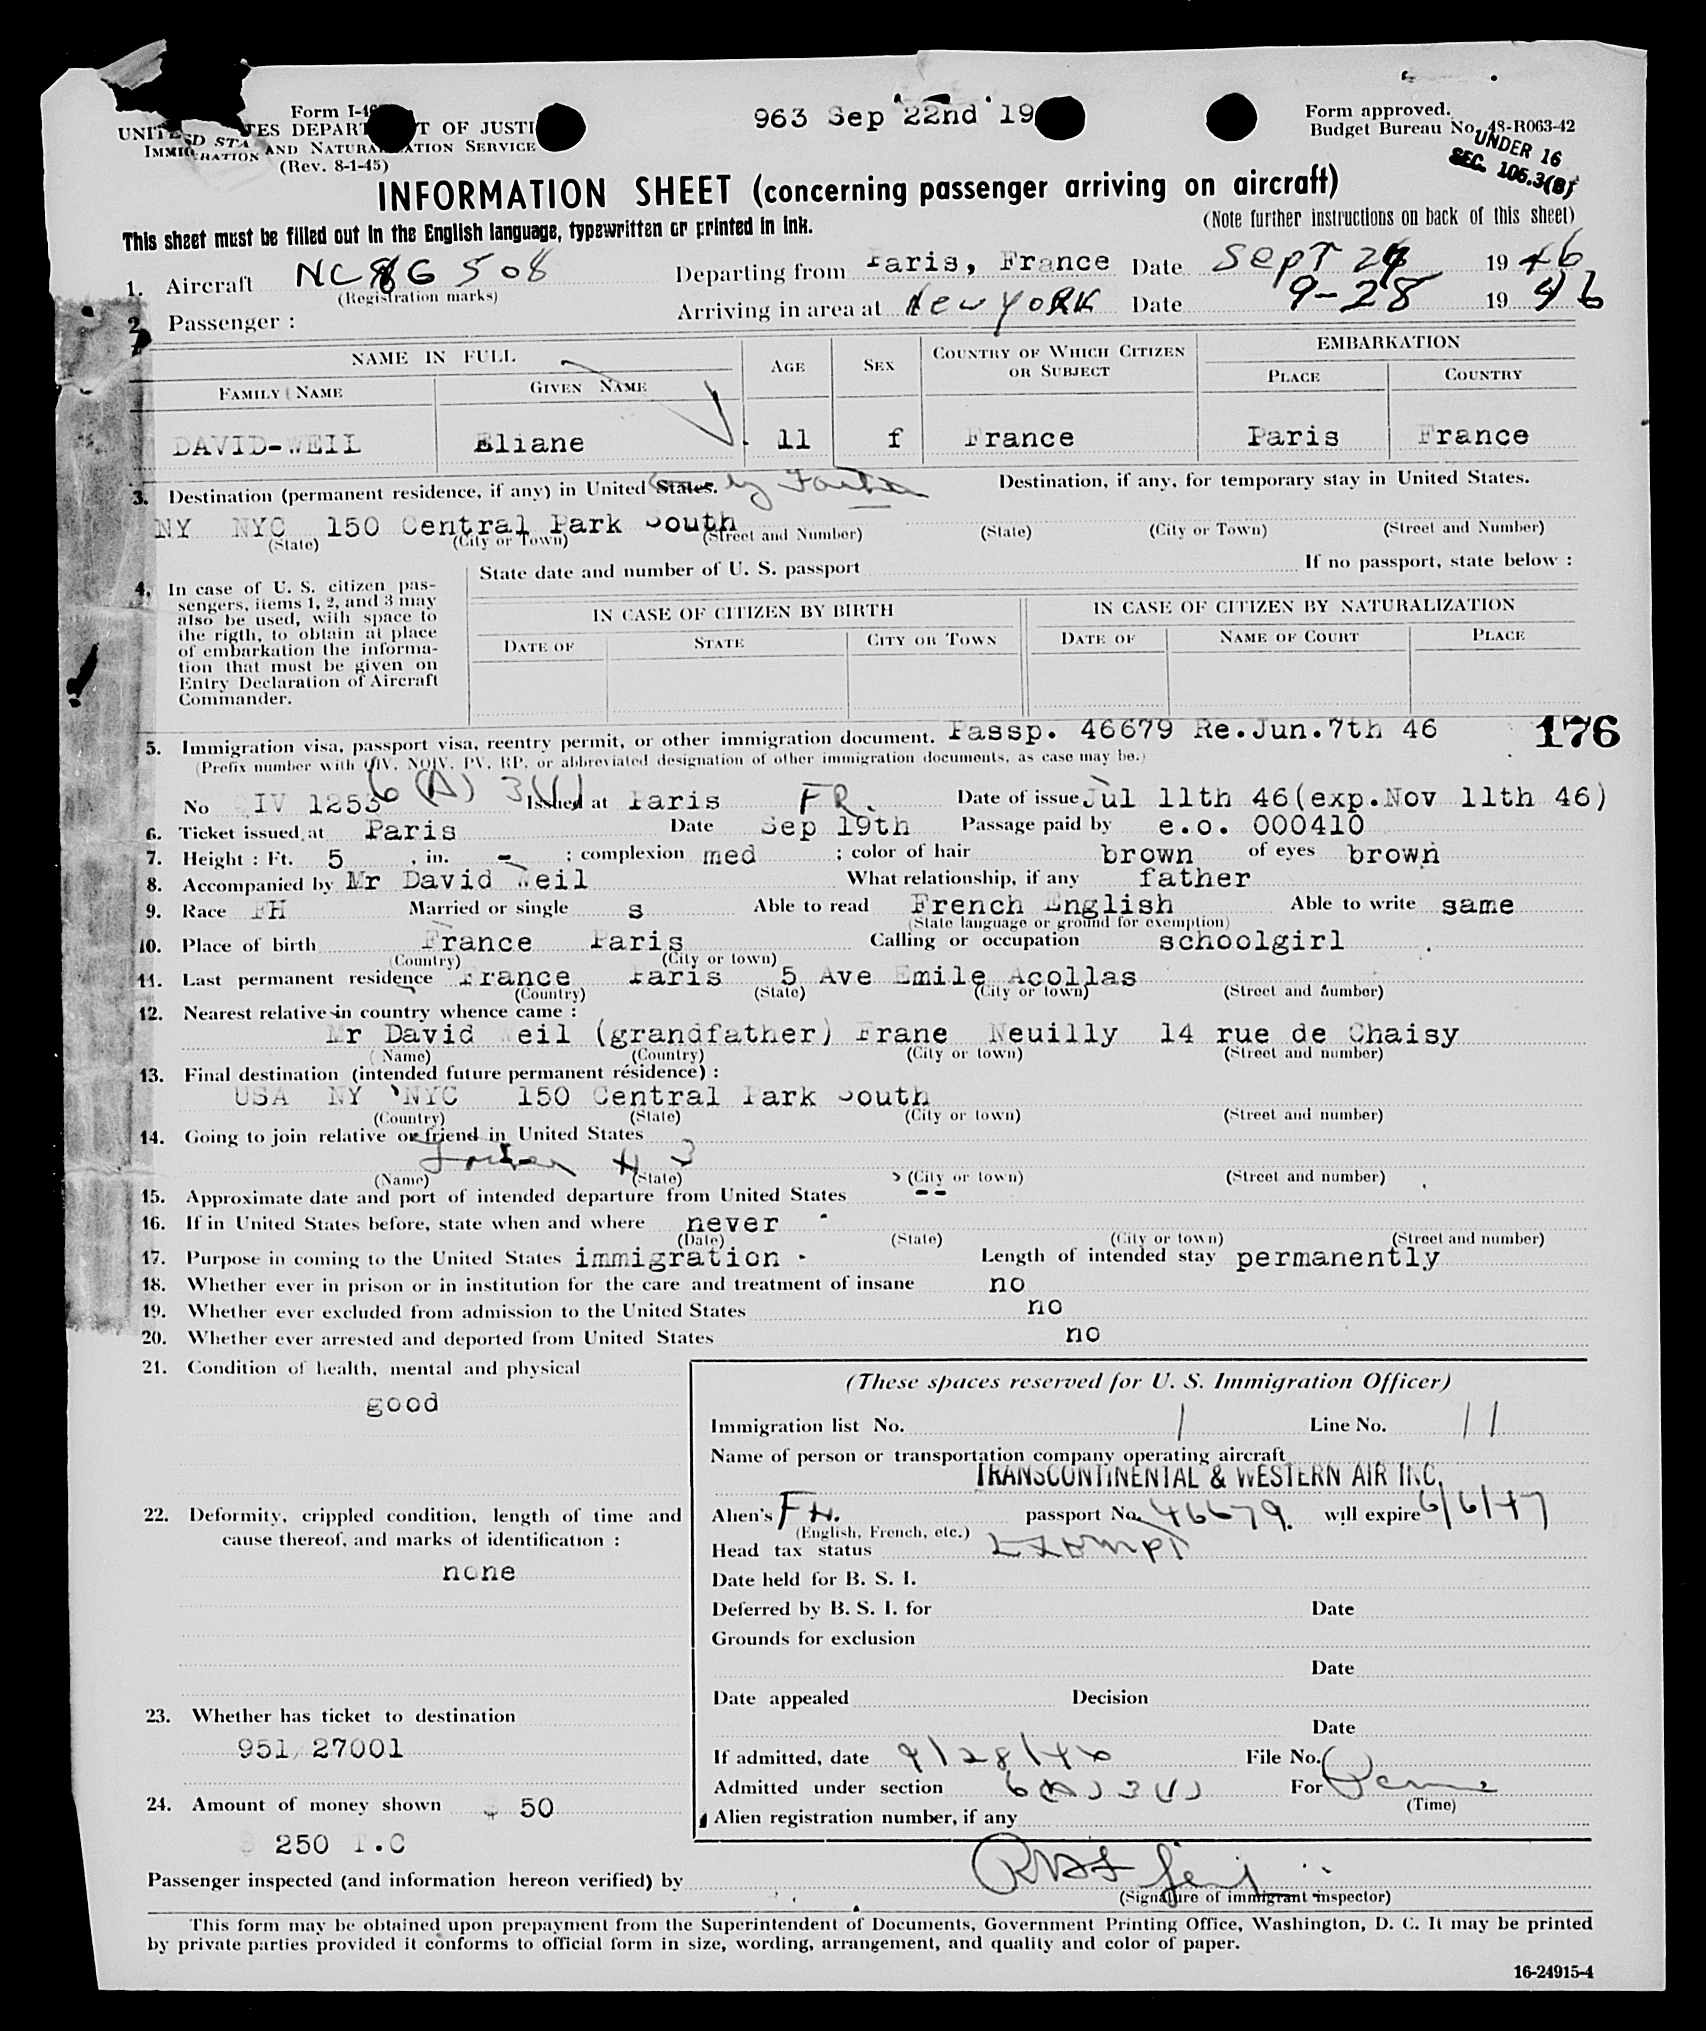 963 Sep 22nd 19
Form approved.
Budget Bureau No. 48-R063-42
UNDER 16
SEC. 105.3(B)
Form I-4
UNITED STATES DEPARTMENT OF JUSTICE
IMMIGRATION AND NATURALIZATION SERVICE
(Rev. 8-1-45)
INFORMATION SHEET (concerning passenger arriving on aircraft)
(Note further instructions on back of this sheet)
This sheet must be filled out in the English language, typewritten or printed in ink.
1. Aircraft NC 86508 Departing from Paris, France Date Sept 1946
(Registration marks)
Arriving in area at New York Date 9-28 1946
2. Passenger :
NAME IN FULL AGE SEX COUNTRY OF WHICH CITIZEN OR SUBJECT EMBARKATION
FAMILY NAME GIVEN NAME PLACE COUNTRY
DAVID-WEIL Eliane 11 f France Paris France
3. Destination (permanent residence, if any) in United States. by Father Destination, if any, for temporary stay in United States.
NY NYC 150 Central Park South
(State) (City or Town) (Street and Number) (State) (City or Town) (Street and Number)
4. In case of U. S. citizen pas-
sengers, items 1, 2, and 3 may
also be used, with space to
the rigth, to obtain at place
of embarkation the informa-
tion that must be given on
Entry Declaration of Aircraft
Commander.
State date and number of U. S. passport If no passport, state below :
IN CASE OF CITIZEN BY BIRTH IN CASE OF CITIZEN BY NATURALIZATION
DATE OF STATE CITY OR TOWN DATE OF NAME OF COURT PLACE
5. Immigration visa, passport visa, reentry permit, or other immigration document. Passp. 46679 Re.Jun.7th 46 176
(Prefix number with QIV, NQIV, PV, RP, or abbreviated designation of other immigration documents, as case may be.)
6(A) 3(1)
No QIV 1253 Issued at Paris FR. Date of issue Jul 11th 46(exp.Nov 11th 46)
6. Ticket issued at Paris Date Sep 19th Passage paid by e.o. 000410
7. Height : Ft. 5 , in. - ; complexion med ; color of hair brown of eyes brown
8. Accompanied by Mr David Weil What relationship, if any father
9. Race FH Married or single s Able to read French English Able to write same
(State language or ground for exemption)
10. Place of birth France Paris Calling or occupation schoolgirl
(Country) (City or town)
11. Last permanent residence France Paris 5 Ave Emile Acollas
(Country) (State) (City or town) (Street and number)
12. Nearest relative in country whence came :
Mr David Weil (grandfather) Frane Neuilly 14 rue de Chaisy
(Name) (Country) (City or town) (Street and number)
13. Final destination (intended future permanent résidence) :
USA NY NYC 150 Central Park South
(Country) (State) (City or town) (Street and number)
14. Going to join relative or friend in United States
Father # 3
(Name) (State) (City or town) (Street and number)
15. Approximate date and port of intended departure from United States --
16. If in United States before, state when and where never
(Date) (State) (City or town) (Street and number)
17. Purpose in coming to the United States immigration - Length of intended stay permanently
18. Whether ever in prison or in institution for the care and treatment of insane no
19. Whether ever excluded from admission to the United States no
20. Whether ever arrested and deported from United States no
21. Condition of health, mental and physical
good
22. Deformity, crippled condition, length of time and
cause thereof, and marks of identification :
none
23. Whether has ticket to destination
951/27001
24. Amount of money shown $ 50
$ 250 T.C
(These spaces reserved for U. S. Immigration Officer)
Immigration list No. 1 Line No. 11
Name of person or transportation company operating aircraft
TRANSCONTINENTAL & WESTERN AIR INC.
Alien's FH. passport No. 46679. will expire 6/6/47
(English, French, etc.)
Head tax status Exempt
Date held for B. S. I.
Deferred by B. S. I. for Date
Grounds for exclusion
Date
Date appealed Decision
Date
If admitted, date 9/28/46 File No.
Admitted under section 6(A) 3(1) For Perm
(Time)
Alien registration number, if any
Passenger inspected (and information hereon verified) by
(Signature of immigrant inspector)
This form may be obtained upon prepayment from the Superintendent of Documents, Government Printing Office, Washington, D. C. It may be printed
by private parties provided it conforms to official form in size, wording, arrangement, and quality and color of paper.
16-24915-4